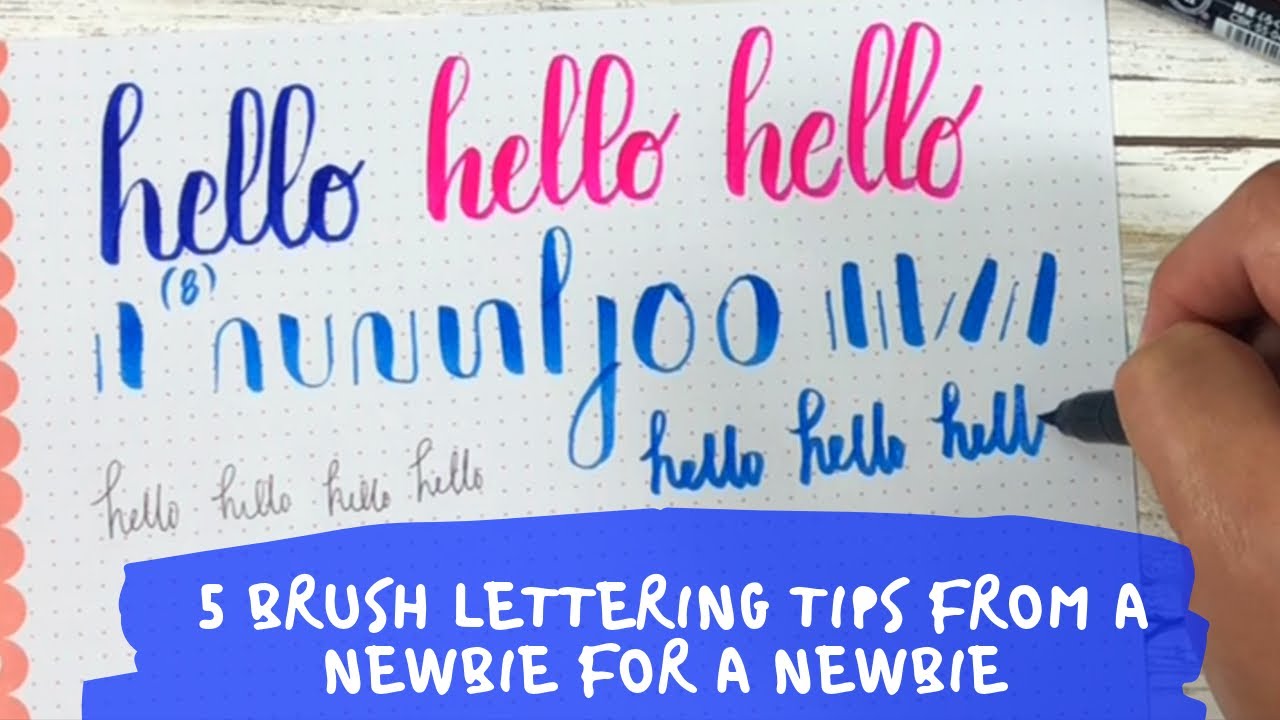 hello hello hello
(8)
hello hello hell
hello hello hello hello
5 BRUSH LETTERING TIPS FROM A
NEWBIE FOR A NEWBIE